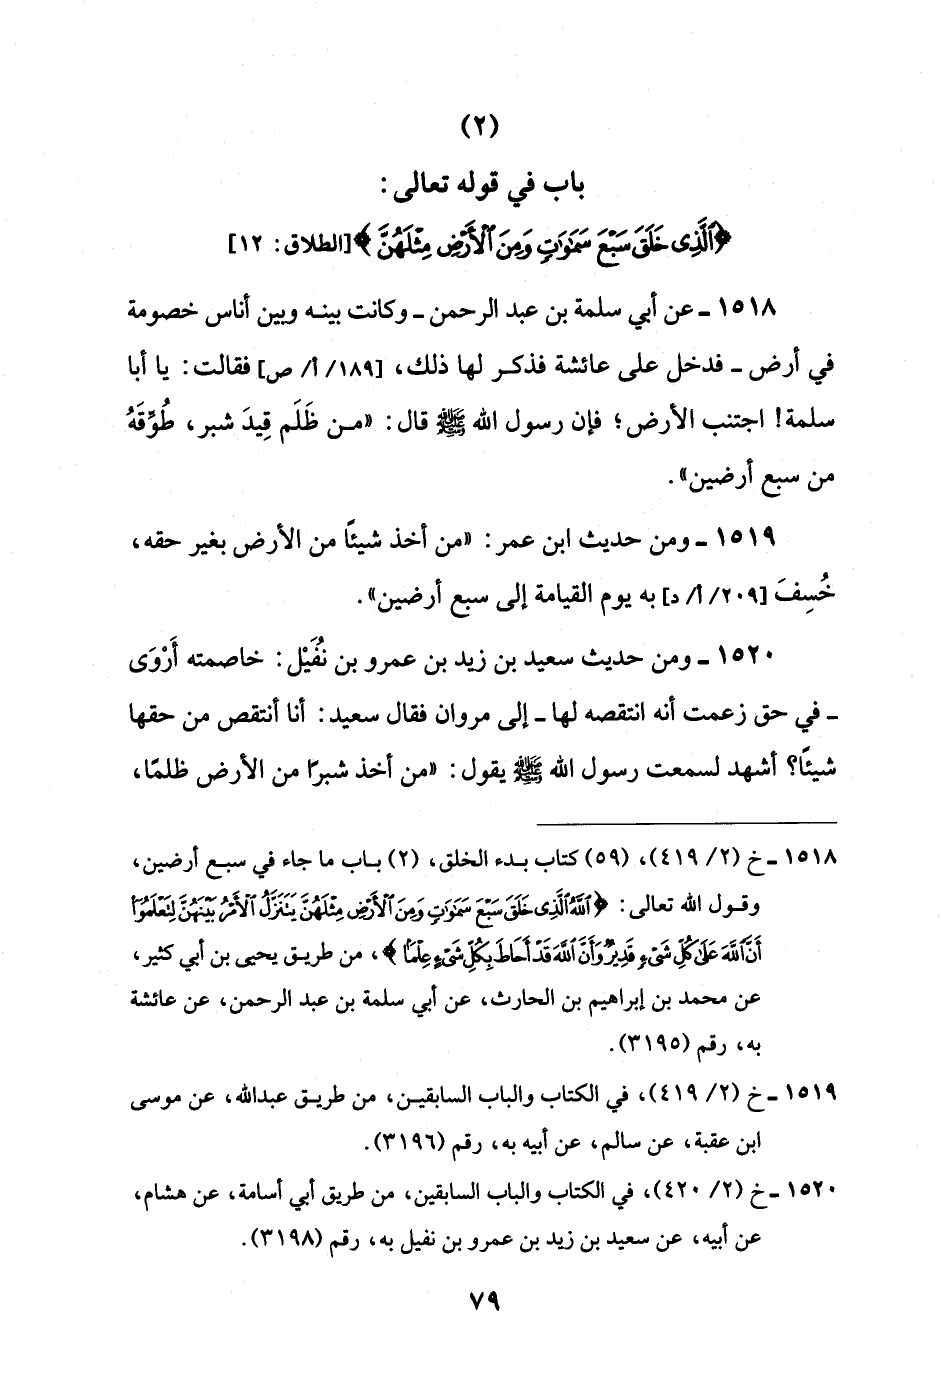 (٢)
باب في قوله تعالى:
﴿ٱلَّذِى خَلَقَ سَبْعَ سَمَٰوَٰتٍ وَمِنَ ٱلْأَرْضِ مِثْلَهُنَّ﴾ [الطلاق: ١٢]
١٥١٨ ـ عن أبي سلمة بن عبد الرحمن ـ وكانت بينه وبين أناس خصومة
في أرض ـ فدخل على عائشة فذكر لها ذلك، [١٨٩/ أ/ ص] فقالت: يا أبا
سلمة! اجتنب الأرض؛ فإن رسول الله ﷺ قال: «من ظَلَم قِيدَ شبر، طُوِّقَهُ
من سبع أرضين».
١٥١٩ ـ ومن حديث ابن عمر: «من أخذ شيئًا من الأرض بغير حقه،
خُسِفَ [٢٠٩/ أ/ د] به يوم القيامة إلى سبع أرضين».
١٥٢٠ ـ ومن حديث سعيد بن زيد بن عمرو بن نُفَيْل: خاصمته أَرْوَى
ـ في حق زعمت أنه انتقصه لها ـ إلى مروان فقال سعيد: أنا أنتقص من حقها
شيئًا؟ أشهد لسمعت رسول الله ﷺ يقول: «من أخذ شبرًا من الأرض ظلمًا،
١٥١٨ ـ خ (٢/ ٤١٩)، (٥٩) كتاب بدء الخلق، (٢) باب ما جاء في سبع أرضين،
وقول الله تعالى: ﴿ٱللَّهُ ٱلَّذِى خَلَقَ سَبْعَ سَمَٰوَٰتٍ وَمِنَ ٱلْأَرْضِ مِثْلَهُنَّ يَتَنَزَّلُ ٱلْأَمْرُ بَيْنَهُنَّ لِتَعْلَمُوٓا۟
أَنَّ ٱللَّهَ عَلَىٰ كُلِّ شَىْءٍ قَدِيرٌ وَأَنَّ ٱللَّهَ قَدْ أَحَاطَ بِكُلِّ شَىْءٍ عِلْمًۢا﴾، من طريق يحيى بن أبي كثير،
عن محمد بن إبراهيم بن الحارث، عن أبي سلمة بن عبد الرحمن، عن عائشة
به، رقم (٣١٩٥).
١٥١٩ ـ خ (٢/ ٤١٩)، في الكتاب والباب السابقين، من طريق عبدالله، عن موسى
ابن عقبة، عن سالم، عن أبيه به، رقم (٣١٩٦).
١٥٢٠ ـ خ (٢/ ٤٢٠)، في الكتاب والباب السابقين، من طريق أبي أسامة، عن هشام،
عن أبيه، عن سعيد بن زيد بن عمرو بن نفيل به، رقم (٣١٩٨).
٧٩